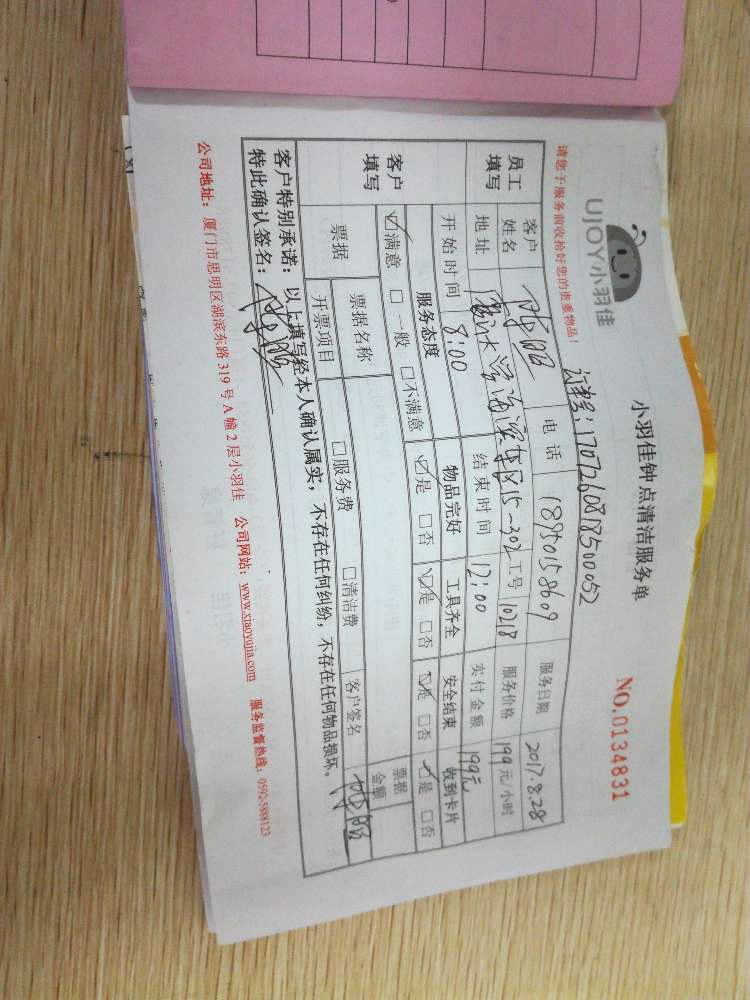 UJOY小羽佳
小羽佳钟点清洁服务单
NO.0134831
请您于服务前收捡好您的贵重物品！
订单号：17072608185000052
员工填写
客户姓名
电话 18950158609
服务日期 2017.8.28
地址 厦大学海滨东区15-302
工号 10218
服务价格 199元/小时
开始时间 8:00
结束时间 12:00
实付金额 199元
客户填写
服务态度 物品完好 工具齐全 安全结束 收到卡片
☑满意 □一般 □不满意 ☑是 □否 ☑是 □否 ☑是 □否 ☑是 □否
票据 票据名称 □服务费 □清洁费 票据金额
开票项目 客户签名
客户特别承诺：以上填写经本人确认属实，不存在任何纠纷，不存在任何物品损坏。
特此确认签名：
公司地址：厦门市思明区湖滨东路319号A幢2层小羽佳 公司网站：www.xiaoyujia.com 服务监督热线：0592-5888123